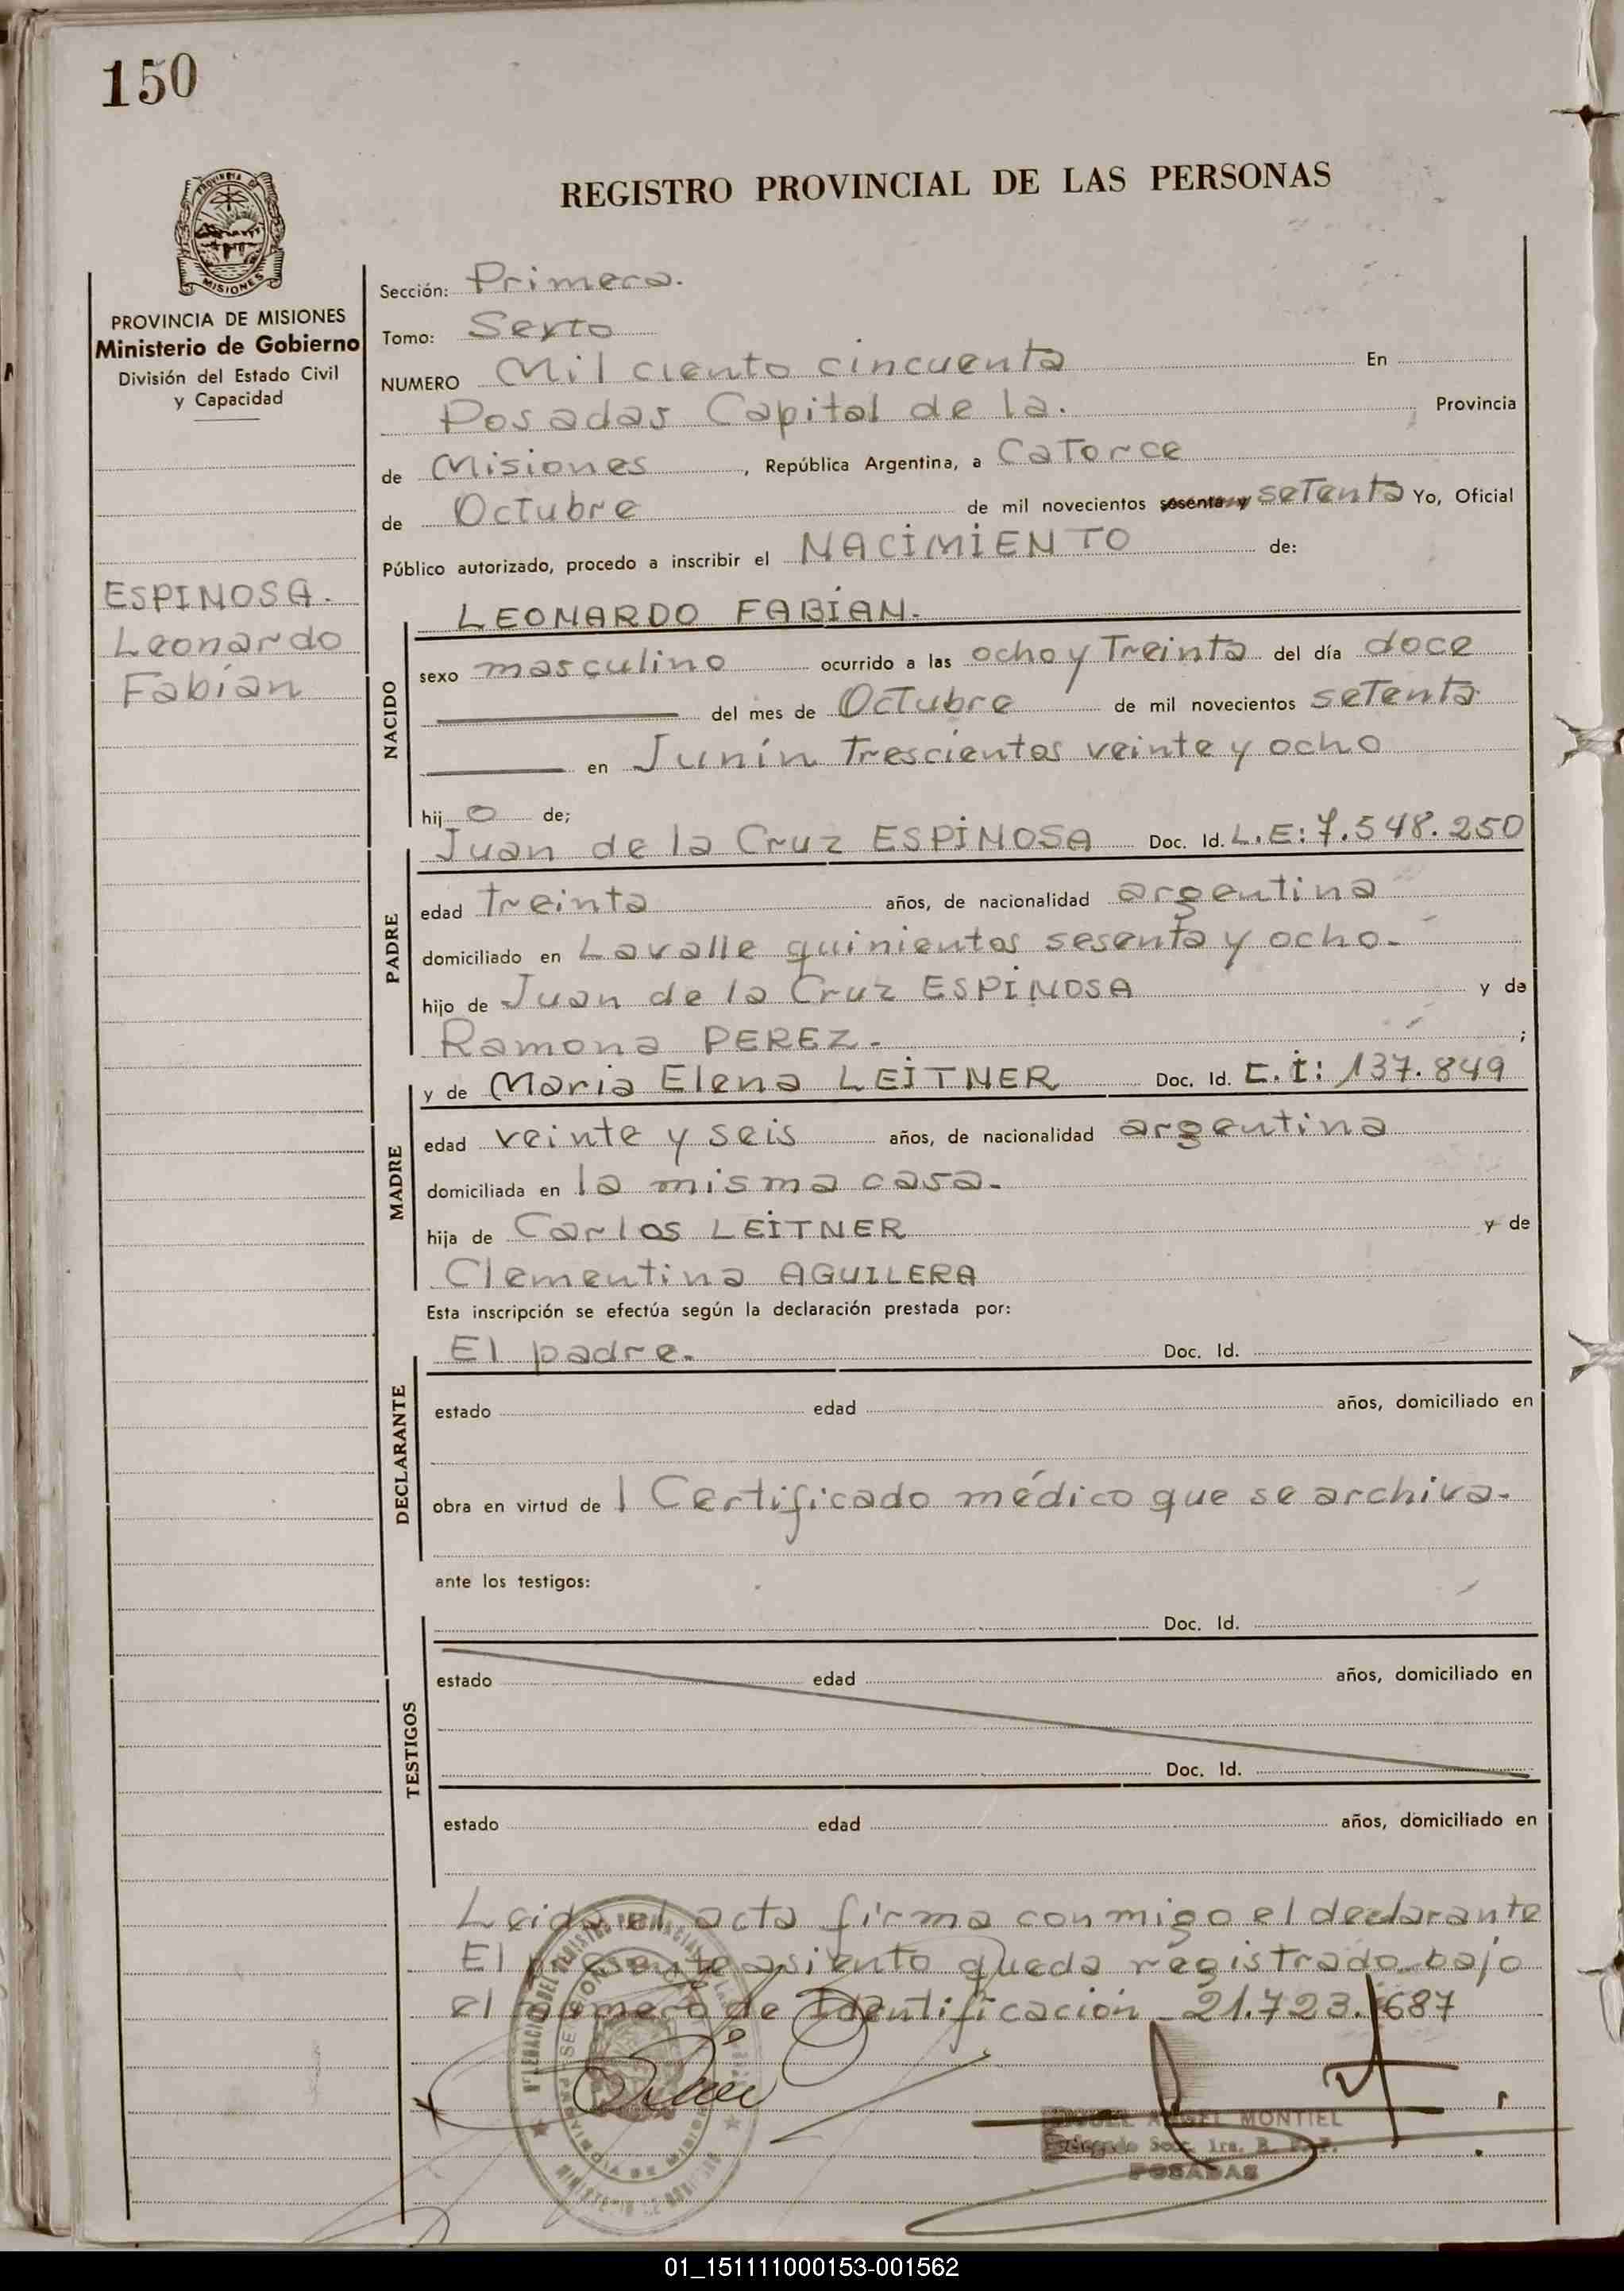 150
REGISTRO PROVINCIAL DE LAS PERSONAS
PROVINCIA DE
MISIONES
PROVINCIA DE MISIONES
Ministerio de Gobierno
División del Estado Civil
y Capacidad
ESPINOSA.
Leonardo
Fabián
Sección: Primera.
Tomo: Sexto
NUMERO Mil ciento cincuenta En
Posadas Capital de la. Provincia
de Misiones, República Argentina, a Catorce
de Octubre de mil novecientos sesenta y setenta Yo, Oficial
Público autorizado, procedo a inscribir el NACIMIENTO de:
LEONARDO FABIAN.
NACIDO
sexo masculino ocurrido a las ocho y Treinta del día doce
del mes de Octubre de mil novecientos setenta
en Junín Trescientos veinte y ocho
hijo de;
Juan de la Cruz ESPINOSA Doc. Id. L.E: 7.548.250
PADRE
edad treinta años, de nacionalidad argentina
domiciliado en Lavalle quinientos sesenta y ocho.
hijo de Juan de la Cruz ESPINOSA y de
Ramona PEREZ. ;
y de Maria Elena LEITNER Doc. Id. C.I: 137.849
MADRE
edad veinte y seis años, de nacionalidad argentina
domiciliada en la misma casa.
hija de Carlos LEITNER y de
Clementina AGUILERA
Esta inscripción se efectúa según la declaración prestada por:
El padre. Doc. Id.
DECLARANTE
estado edad años, domiciliado en
obra en virtud de 1 Certificado médico que se archiva.
ante los testigos:
Doc. Id.
TESTIGOS
estado edad años, domiciliado en
Doc. Id.
estado edad años, domiciliado en
Leida el acta firma conmigo el declarante
El presente asiento queda registrado bajo
el numero de Identificación 21.723.687
ANGEL MONTIEL
Delegado Secc. 1ra. R. P. P.
POSADAS
01_151111000153-001562